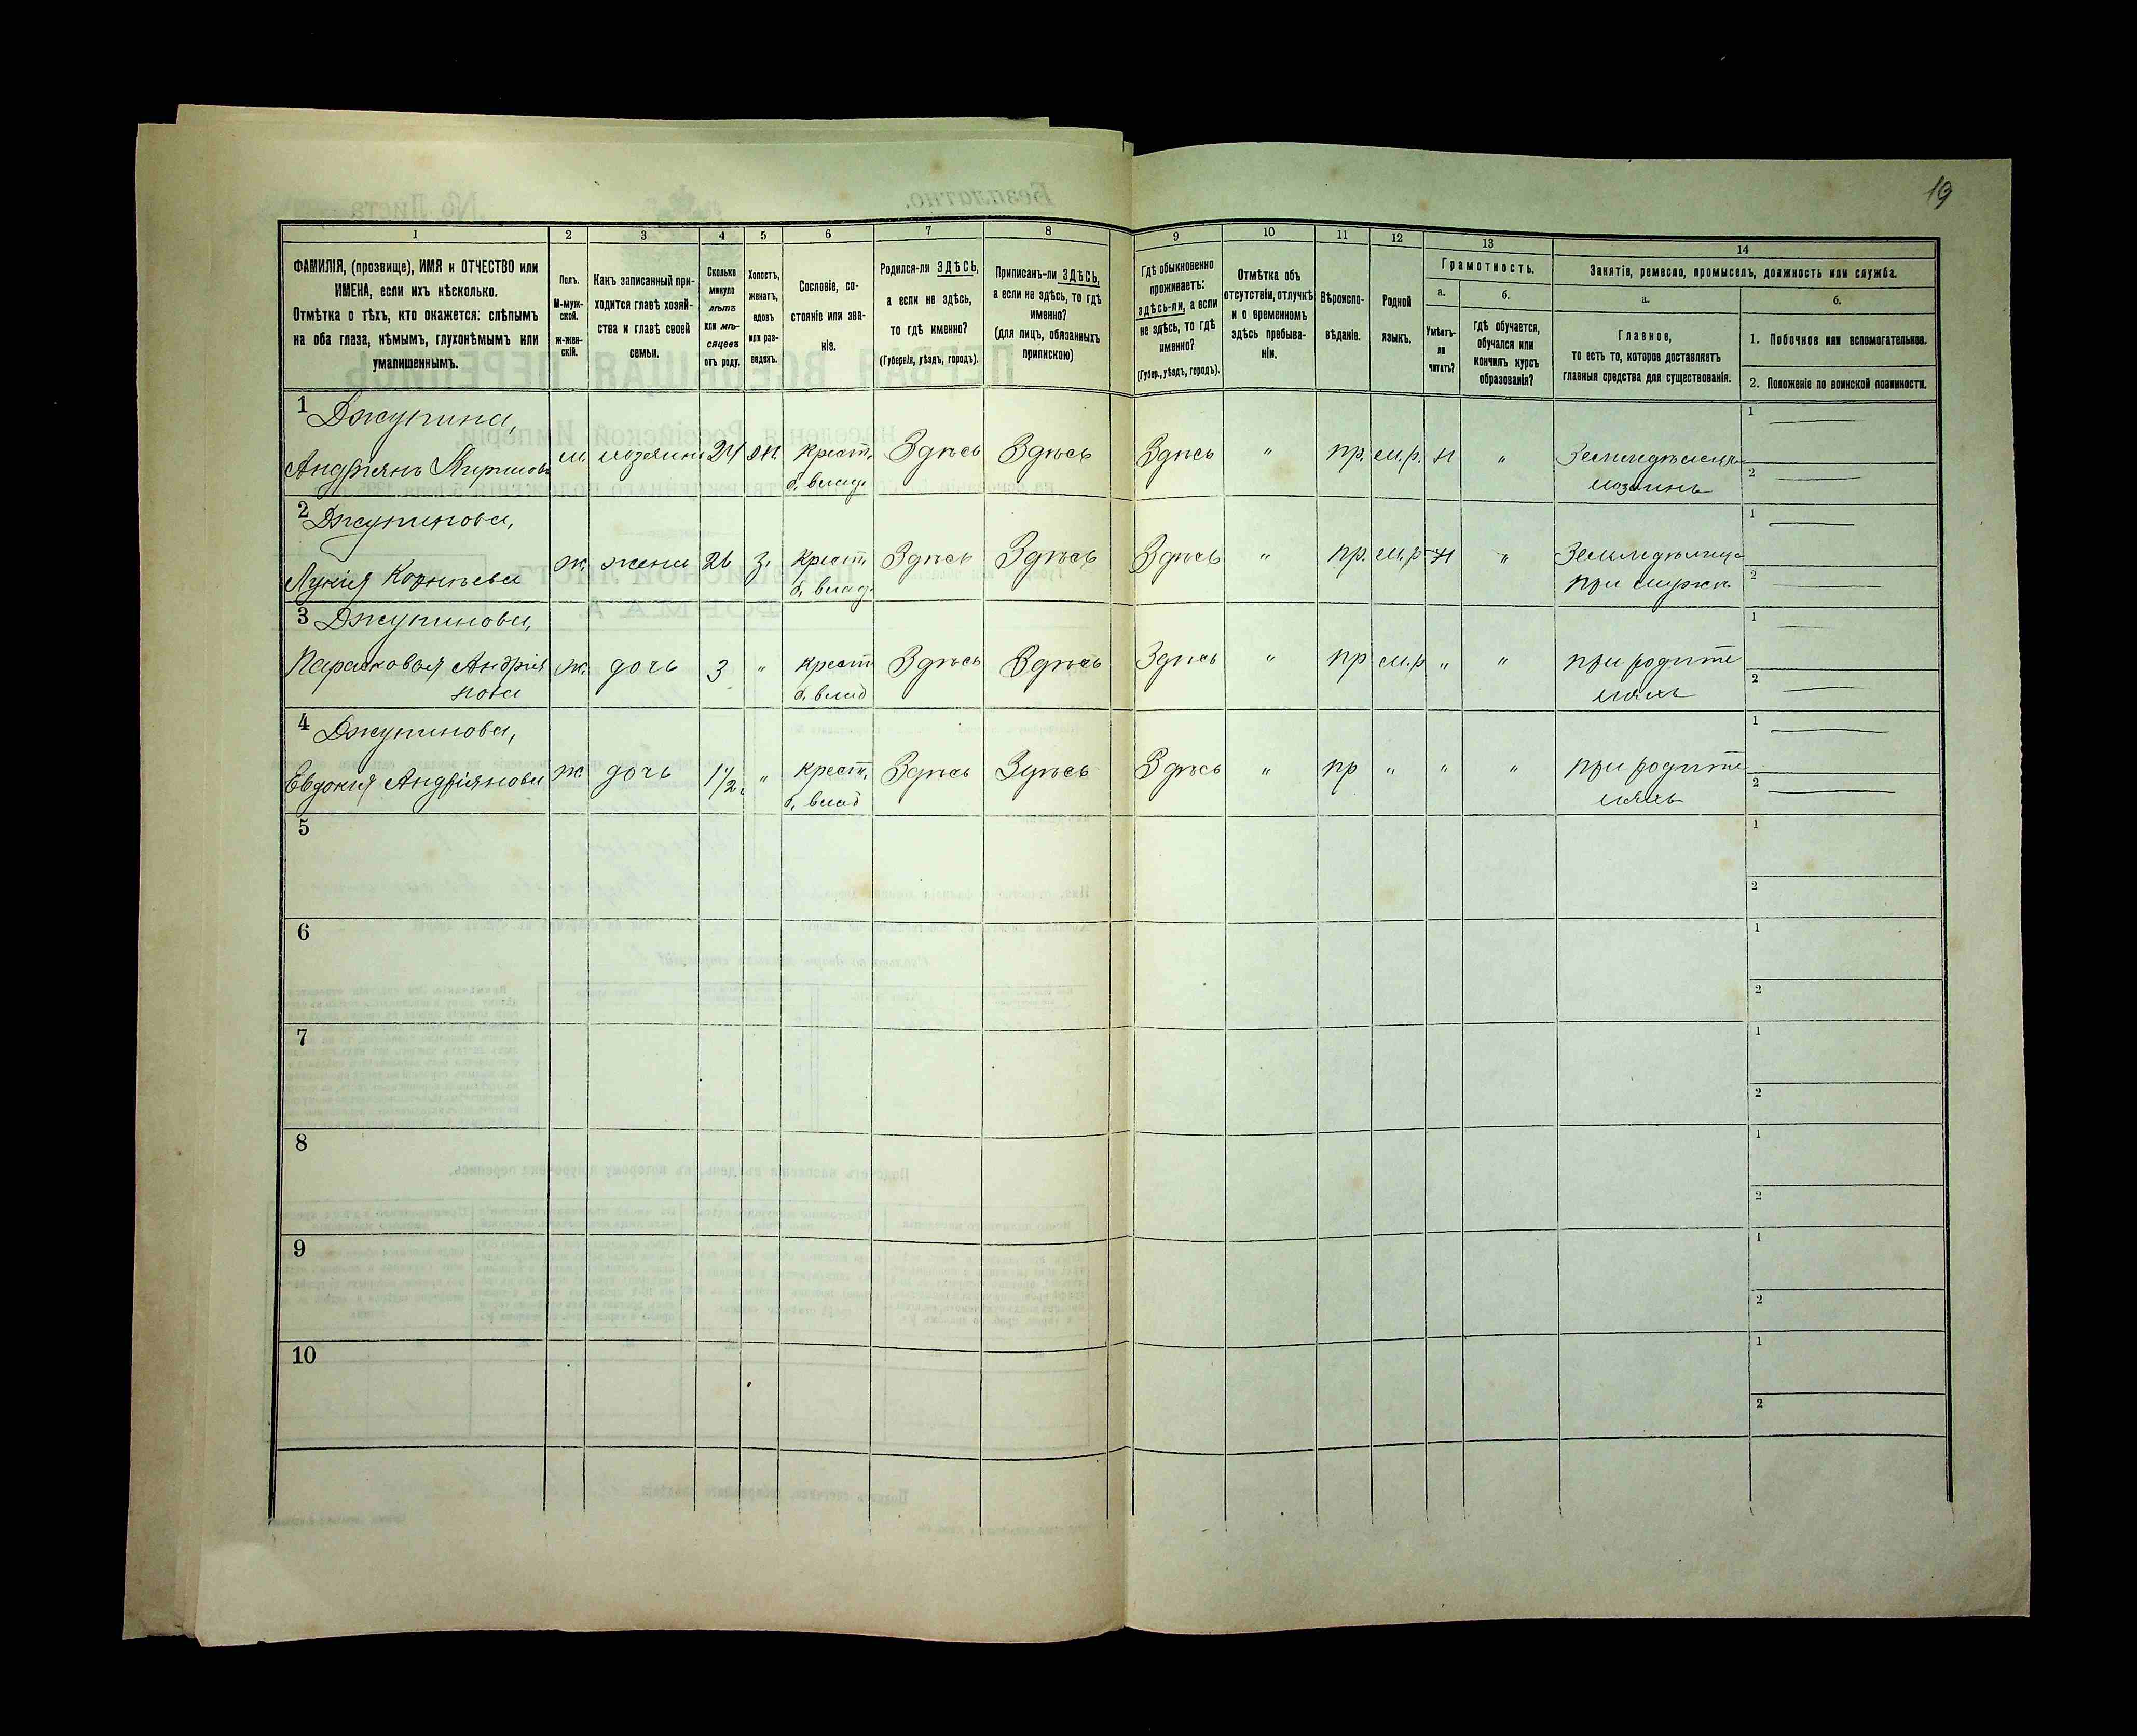 19
1 2 3 4 5 6 7 8 9 10 11 12 13 14
ФАМИЛІЯ, (прозвище), ИМЯ и ОТЧЕСТВО или
ИМЕНА, если ихъ нѣсколько.
Отмѣтка о тѣхъ, кто окажется: слѣпымъ
на оба глаза, нѣмымъ, глухонѣмымъ или
умалишеннымъ.
Полъ.
М-муж-
ской.
Ж-жен-
скій.
Какъ записанный при-
ходится главѣ хозяй-
ства и главѣ своей
семьи.
Сколько
минуло
лѣтъ
или мѣ-
сяцевъ
отъ роду.
Холостъ,
женатъ,
вдовъ
или раз-
веденъ.
Сословіе, со-
стояніе или зва-
ніе.
Родился-ли ЗДѢСЬ,
а если не здѣсь,
то гдѣ именно?
(Губернія, уѣздъ, городъ).
Приписанъ-ли ЗДѢСЬ,
а если не здѣсь, то гдѣ
именно?
(для лицъ, обязанныхъ
припискою)
Гдѣ обыкновенно
проживаетъ:
здѣсь-ли, а если
не здѣсь, то гдѣ
именно?
(Губер., уѣздъ, городъ).
Отмѣтка объ
отсутствіи, отлучкѣ
и о временномъ
здѣсь пребыва-
ніи.
Вѣроиспо-
вѣданіе.
Родной
языкъ.
Грамотность.
а.
Умѣетъ-
ли
читать?
б.
гдѣ обучается,
обучался или
кончилъ курсъ
образованія?
Занятіе, ремесло, промыселъ, должность или служба.
а.
Главное,
то есть то, которое доставляетъ
главныя средства для существованія.
б.
1. Побочное или вспомогательное.
2. Положеніе по воинской повинности.
1 Джупина,
Андріянъ м. хозяинъ 24 ж. крест. Здѣсь Здѣсь Здѣсь " пр. м.р. н " Земледѣлецъ
б. влад. хозяинъ
1
2
2 Джупинова,
Лукія Корнѣева ж. жена 26 з. крест. Здѣсь Здѣсь Здѣсь " пр. м.р н " Земледѣлица
б. влад. при мужѣ
1
2
3 Джупинова,
Парасковія Андрія ж. дочь 3 " крест Здѣсь Здѣсь Здѣсь " пр м.р " " при родите
нова б. влад ляхъ
1
2
4 Джупинова,
Евдокія Андріянова ж. дочь 1 1/2 " крест. Здѣсь Здѣсь Здѣсь " пр " " " при родите
б. влад ляхъ
1
2
5
1
2
6
1
2
7
1
2
8
1
2
9
1
2
10
1
2